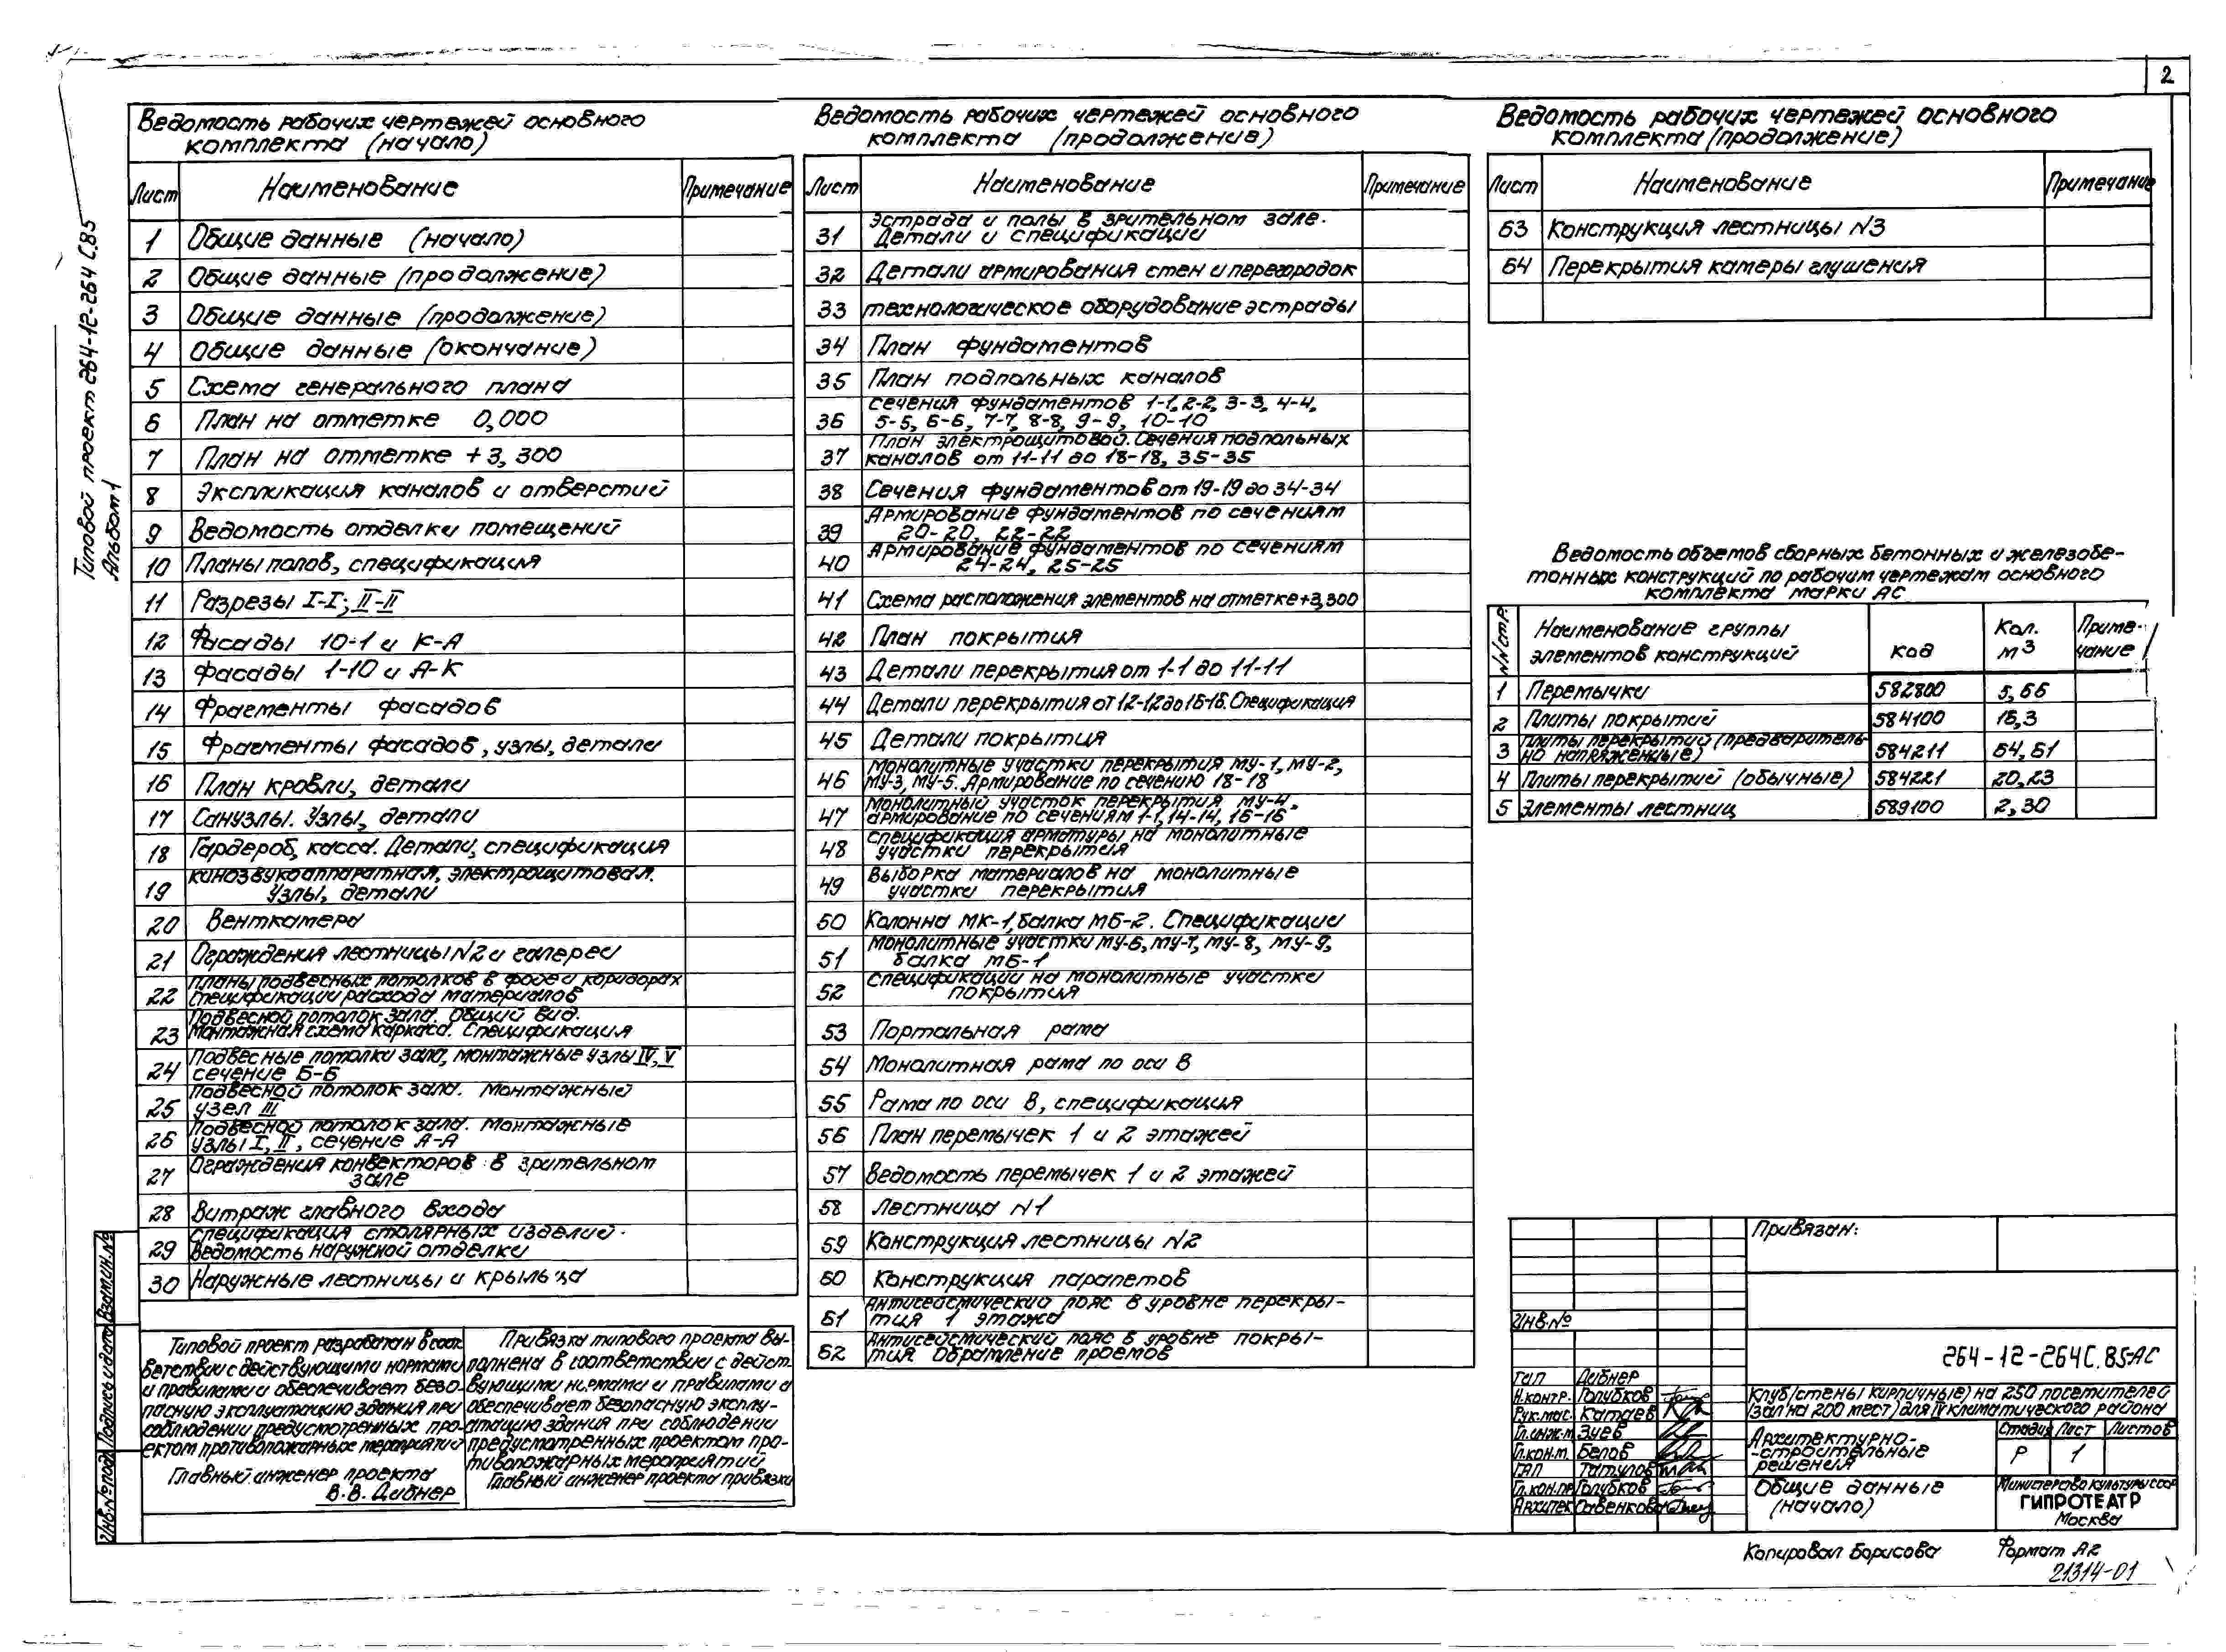 2
Типовой проект 264-12-264 с.85
Альбом 1
Ведомость рабочих чертежей основного
комплекта (начало)
Лист Наименование Примечание
1 Общие данные (начало)
2 Общие данные (продолжение)
3 Общие данные (продолжение)
4 Общие данные (окончание)
5 Схема генерального плана
6 План на отметке 0,000
7 План на отметке +3,300
8 Экспликация каналов и отверстий
9 Ведомость отделки помещений
10 Планы полов, спецификация
11 Разрезы I-I; II-II
12 Фасады 10-1 и К-А
13 Фасады 1-10 и А-К
14 Фрагменты фасадов
15 Фрагменты фасадов, узлы, детали
16 План кровли, детали
17 Санузлы. Узлы, детали
18 Гардероб, касса. Детали, спецификация
19 Кинозвукоаппаратная, электрощитовая.
Узлы, детали
20 Венткамера
21 Ограждения лестницы N2 и галереи
22 Планы подвесных потолков в фойе и коридорах
Спецификации расхода материалов
23 Подвесной потолок зала. Общий вид.
Монтажная схема каркаса. Спецификация
24 Подвесные потолки зала, монтажные узлы IV, V
сечение Б-Б
25 Подвесной потолок зала. Монтажный
узел III
26 Подвесной потолок зала. Монтажные
узлы I, II, сечение А-А
27 Ограждения конвекторов в зрительном
зале
28 Витраж главного входа
29 Спецификация столярных изделий.
Ведомость наружной отделки
30 Наружные лестницы и крыльца
Типовой проект разработан в соот-
ветствии с действующими нормами
и правилами и обеспечивает безо-
пасную эксплуатацию здания при
соблюдении предусмотренных про-
ектом противопожарных мероприятий
Главный инженер проекта
В.В. Дибнер
Привязка типового проекта вы-
полнена в соответствии с дейст-
вующими нормами и правилами и
обеспечивает безопасную эксплу-
атацию здания при соблюдении
предусмотренных проектом про-
тивопожарных мероприятий
Главный инженер проекта привязки
Ведомость рабочих чертежей основного
комплекта (продолжение)
Лист Наименование Примечание
31 Эстрада и полы в зрительном зале.
Детали и спецификации
32 Детали армирования стен и перегородок
33 Технологическое оборудование эстрады
34 План фундаментов
35 План подпольных каналов
36 Сечения фундаментов 1-1, 2-2, 3-3, 4-4,
5-5, 6-6, 7-7, 8-8, 9-9, 10-10
37 План электрощитовой. Сечения подпольных
каналов от 11-11 до 18-18, 35-35
38 Сечения фундаментов от 19-19 до 34-34
39 Армирование фундаментов по сечениям
20-20, 22-22
40 Армирование фундаментов по сечениям
24-24, 25-25
41 Схема расположения элементов на отметке +3,300
42 План покрытия
43 Детали перекрытия от 1-1 до 11-11
44 Детали перекрытия от 12-12 до 16-16. Спецификация
45 Детали покрытия
46 Монолитные участки перекрытия МУ-1, МУ-2,
МУ-3, МУ-5. Армирование по сечению 18-18
47 Монолитный участок перекрытия МУ-4.
армирование по сечениям 1-1, 14-14, 16-16
48 Спецификация арматуры на монолитные
участки перекрытия
49 Выборка материалов на монолитные
участки перекрытия
50 Колонна МК-1, балка МБ-2. Спецификации
51 Монолитные участки МУ-6, МУ-7, МУ-8, МУ-9,
балка МБ-1
52 Спецификации на монолитные участки
покрытия
53 Портальная рама
54 Монолитная рама по оси В
55 Рама по оси В, спецификация
56 План перемычек 1 и 2 этажей
57 Ведомость перемычек 1 и 2 этажей
58 Лестница N1
59 Конструкция лестницы N2
60 Конструкция парапетов
61 Антисейсмический пояс в уровне перекры-
тия 1 этажа
62 Антисейсмический пояс в уровне покры-
тия Обрамление проемов
Ведомость рабочих чертежей основного
комплекта (продолжение)
Лист Наименование Примечание
63 Конструкция лестницы N3
64 Перекрытия камеры глушения
Ведомость объемов сборных бетонных и железобе-
тонных конструкций по рабочим чертежам основного
комплекта марки АС
NN стр. Наименование группы элементов конструкций Код Кол. м3 Приме-чание
1 Перемычки 582800 5,66
2 Плиты покрытий 584100 16,3
3 Плиты перекрытий (предваритель-
но напряженные) 584211 64,61
4 Плиты перекрытий (обычные) 584221 20,23
5 Элементы лестниц 589100 2,30
Привязан:
Инв.№
264-12-264с.85-АС
ГИП Дибнер
Н.контр. Голубков
Рук.мас. Катаев
Гл.инж.м. Зуев
Гл.кон.м. Белов
ГАП Татулов
Гл.кон.пр Голубков
Архитек. Савенкова
Клуб (стены кирпичные) на 250 посетителей
(зал на 200 мест) для IV климатического района
Архитектурно-
-строительные
решения
Стадия Лист Листов
Р 1
Общие данные
(начало)
Министерство культуры СССР
ГИПРОТЕАТР
Москва
Копировал Борисова Формат А2
21314-01
Инв.№ подл. Подпись и дата Взам.инв.№